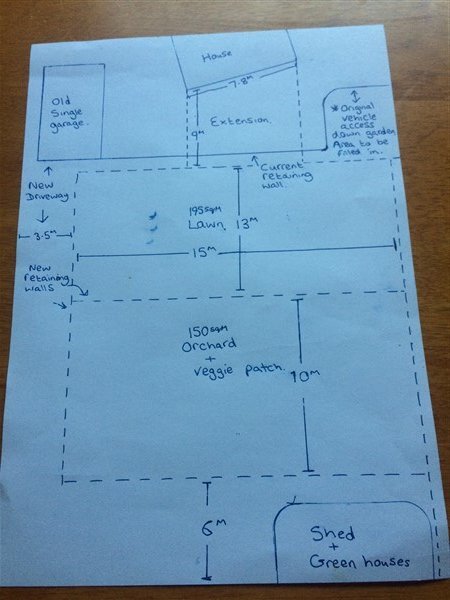 House
7.8m
Old
Single
garage.
9m
Extension.
* Original
vehicle
access
down garden
Area to be
filled in.
New
Driveway
Current
retaining
wall.
195sqm
Lawn.
13m
3.5m
15m
New
retaining
walls
150sqm
Orchard
+
veggie patch.
10m
6m
Shed
+
Green houses